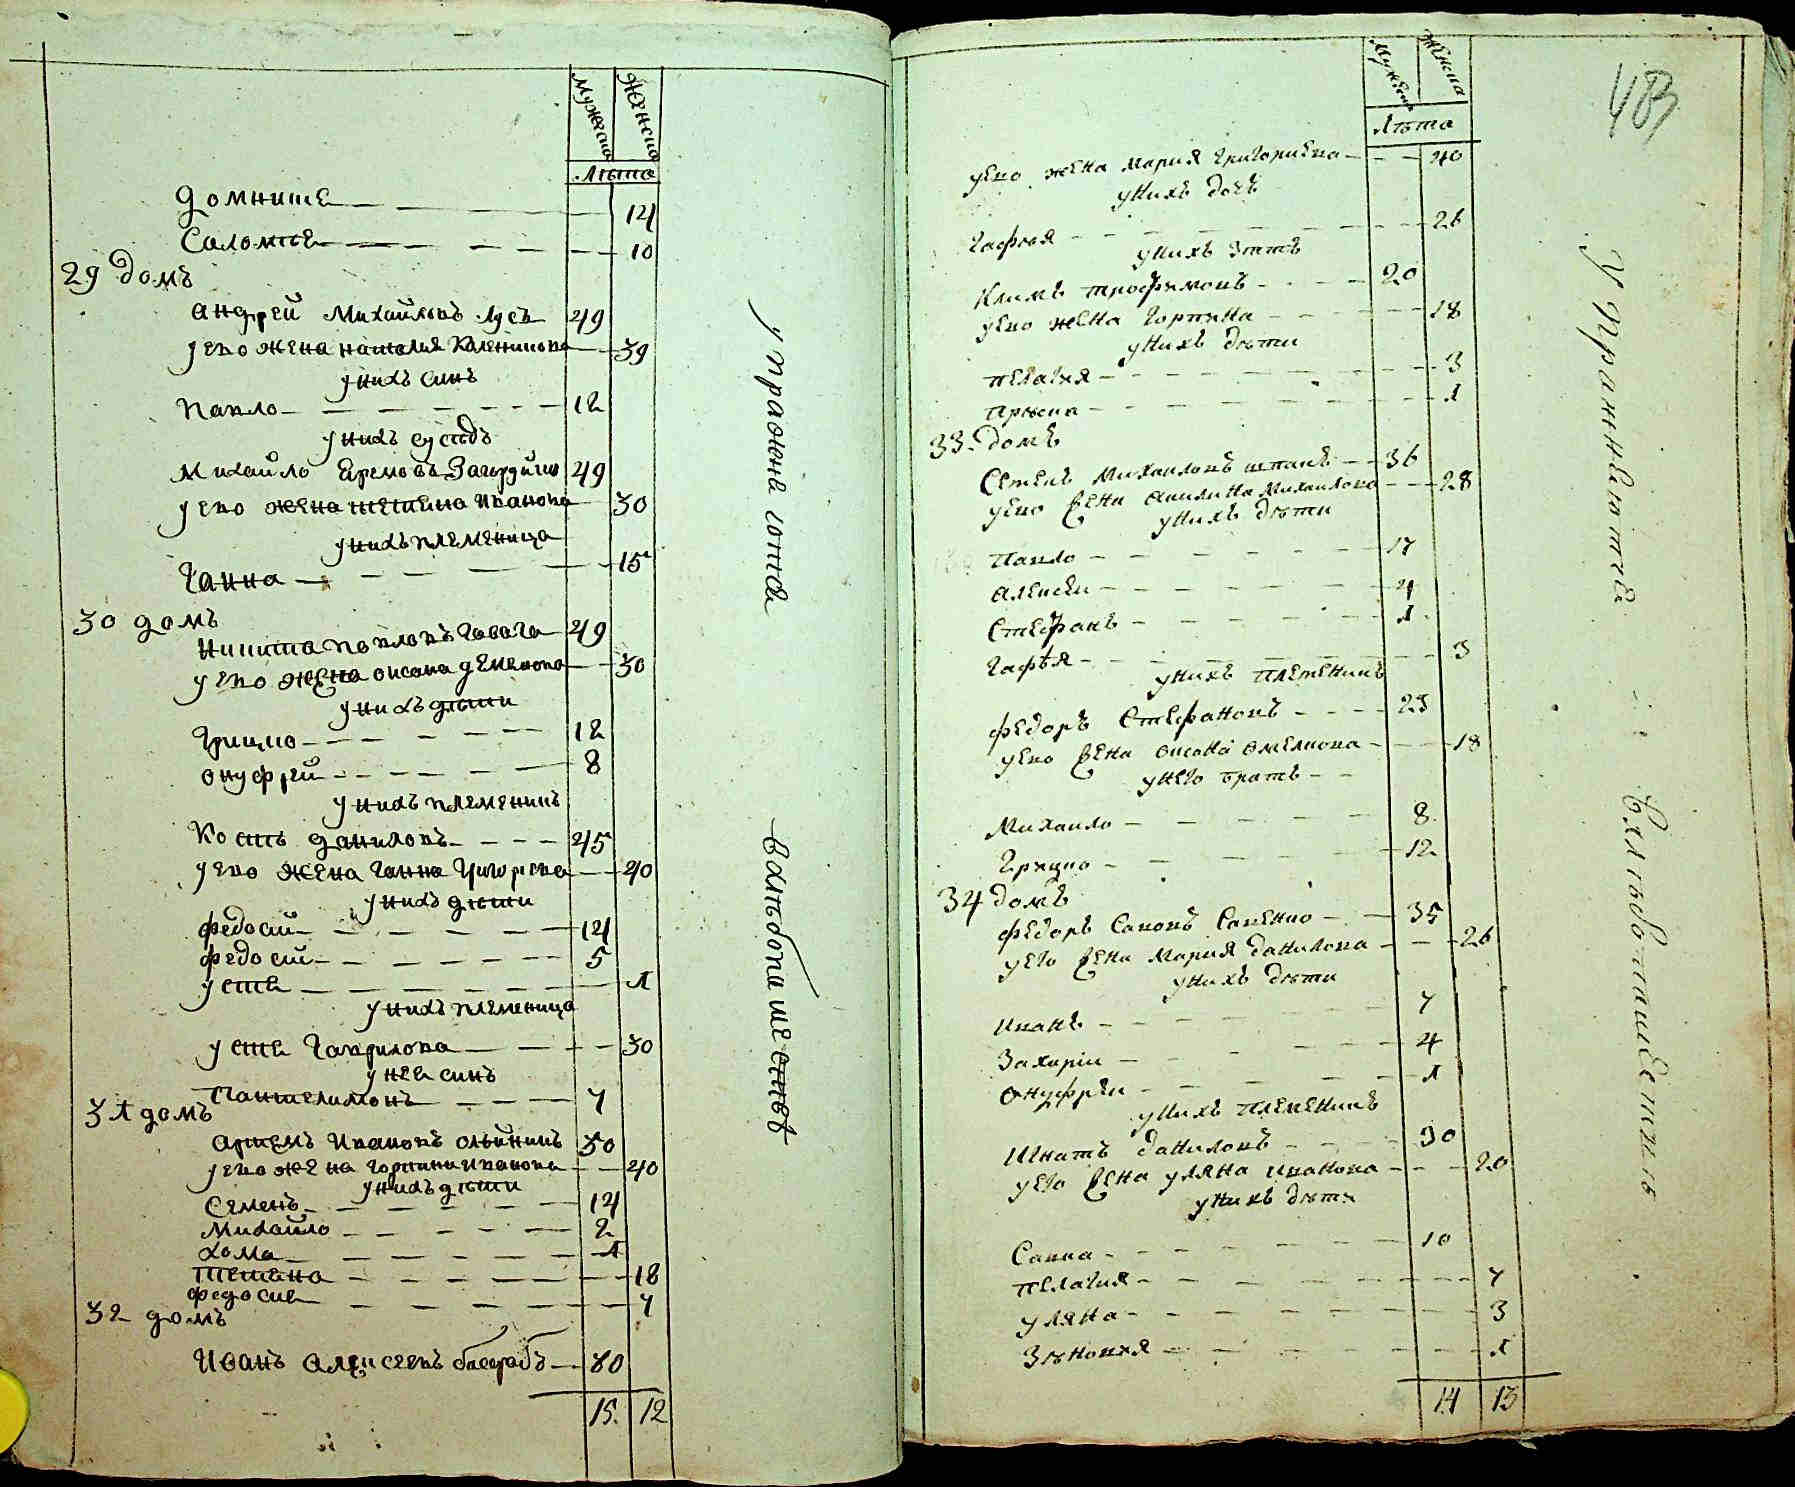 Мужеска Женска
Лѣта
Домнитѣ 14
Саломѣѣ 10
29 домъ
Андрей Михайловъ Лусь 49
у его жена наталия Каленикова 39
у нихъ синъ
Павло 12
у нихъ сусѣдъ
Михайло Еремовъ 49
у его жена тетяна Иванова 30
у нихъ племеница
Ганна 15
30 домъ
Никита Павловъ 49
у его жена оксана деменова 30
у нихъ дѣти
Грицко 12
онуфрей 8
у нихъ племеникъ
Кость даниловъ 45
у его жена Ганна Григориева 40
у нихъ дѣти
федосій 14
федосій 5
устѣ 1
у нихъ племеница
устѣ Гаврилова 30
у нее синъ
Пантелимонъ 7
31 домъ
Артемъ Ивановъ олѣйникъ 50
у его жена горпина Иванова 40
у нихъ дѣти
Семенъ 14
Михайло 2
хома 1
Тетяна 18
федосіѣ 7
32 домъ
Иванъ Алексеевъ басарабъ 80
15. 12
Мужеска Женска
Лѣта
483
у его жена Мария Григориева 40
у нихъ дочь
Гафия 26
у нихъ зять
Климъ трофимовъ 20
у его жена Горпина 18
у нихъ дѣти
пелагия 3
Прѣска 1
33 домъ
Семенъ Михаиловъ шпакъ 36
у его жена акилина Михаилова 28
у нихъ дѣти
Павло 17
Алексеи 4
Стефанъ 1
Гафѣя 3
у нихъ племеникъ
федоръ Стефановъ 23
у его жена оксана омелкова 18
у него братъ
Михаило 8
Грицко 12
34 домъ
федоръ Савовъ Савенко 35
у его жена Мария Данилова 26
у нихъ дѣти
Иванъ 7
Захаріи 4
Онуфреи 1
у нихъ племеникъ
Игнатъ Даниловъ 30
у его жена уляна Иванова 20
у нихъ дѣти
Савка 10
пелагия 7
уляна 3
Зѣновия 1
14 13